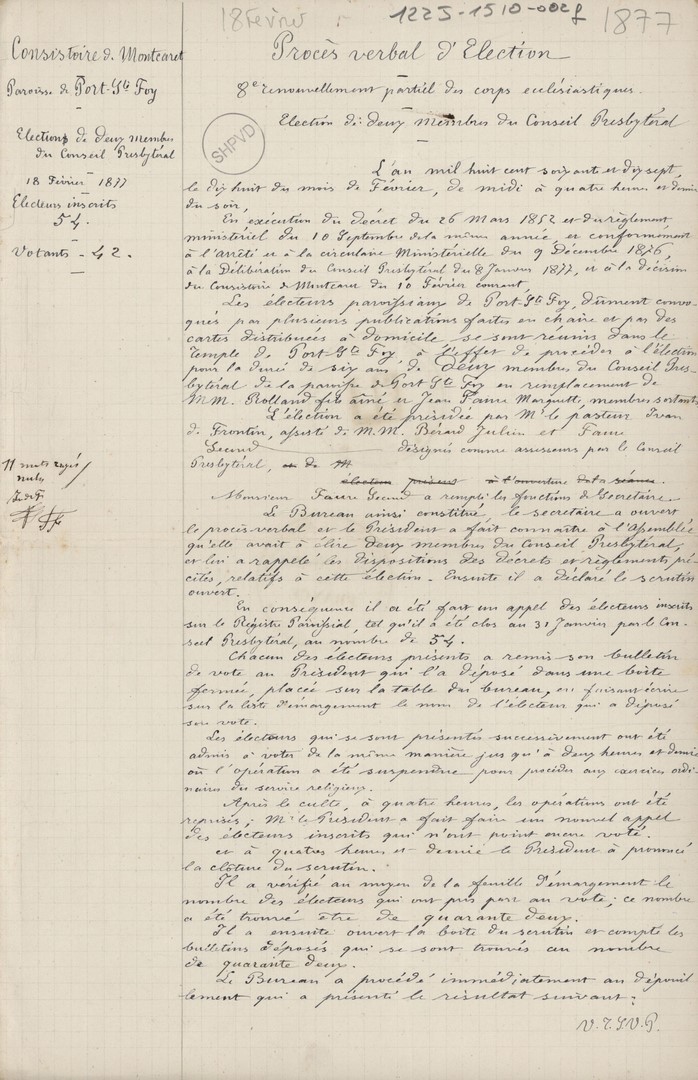 18 Février
1225-1510-002f
1877
Consistoire de Montcaret
Paroisse de Port-Ste Foy
Elections de deux membres
du Conseil Presbytéral
18 Février 1877
Electeurs inscrits
54.
Votants - 42.
11 mots rayés
nuls
Procès verbal d'Election
8e renouvellement partiel des corps ecclésiastiques.
Election de deux membres du Conseil Presbytéral
SHPVD
L'an mil huit cent soixante et dix sept,
le dix huit du mois de Février, de midi à quatre heures et demie
du soir,
En exécution du décret du 26 Mars 1852 et du règlement
ministériel du 10 Septembre de la même année, et conformément
à l'arrêté et à la circulaire Ministérielle du 9 Décembre 1876
à la Délibération du Conseil Presbytéral du 8 Janvier 1877, et à la décision
du Consistoire de Montcaret du 10 Février courant,
Les électeurs paroissiaux de Port-Ste Foy, dûment convo-
qués par plusieurs publications faites en chaire et par des
cartes distribuées à domicile se sont réunis dans le
Temple de Port-Ste Foy à l'effet de procéder à l'élection
pour la durée de six ans de deux membres du Conseil Pres-
bytéral de la paroisse de Port Ste Foy en remplacement de
MM. Rolland fils aîné et Jean Faure Marguitte, membres sortants,
L'élection a été présidée par Mr le pasteur Ivan
de Frontin, assisté de M.M. Bérard Julien et Faure
Second désignés comme assesseurs par le Conseil
Presbytéral, et de M
électeur présent à l'ouverture de la séance.
Monsieur Faure Second a rempli les fonctions de Secrétaire.
Le Bureau ainsi constitué, le secrétaire a ouvert
le procès-verbal et le Président a fait connaître à l'Assemblée
qu'elle avait à élire deux membres du Conseil Presbytéral,
et lui a rappelé les dispositions des décrets et règlements pré-
cités, relatifs à cette élection. Ensuite il a déclaré le scrutin
ouvert.
En conséquence il a été fait un appel des électeurs inscrits
sur le Registre Paroissial, tel qu'il a été clos au 31 Janvier par le Con-
seil Presbytéral, au nombre de 54.
Chacun des électeurs présents a remis son bulletin
de vote au Président qui l'a déposé dans une boîte
fermée, placée sur la table du bureau, en faisant écrire
sur la liste d'émargement le nom de l'électeur qui a déposé
son vote.
Les électeurs qui se sont présentés successivement ont été
admis à voter de la même manière jusqu'à deux heures et demie
où l'opération a été suspendue pour procéder aux exercices ordi-
naires du service religieux.
Après le culte, à quatre heures, les opérations ont été
reprises; Mr le Président a fait faire un nouvel appel
des électeurs inscrits qui n'ont point encore voté.
et à quatres heures et demie le Président a prononcé
la clôture du scrutin.
Il a vérifié au moyen de la feuille d'émargement le
nombre des électeurs qui ont pris part au vote; ce nombre
a été trouvé être de quarante deux.
Il a ensuite ouvert la boîte du scrutin et compté les
bulletins déposés qui se sont trouvés au nombre
de quarante deux.
Le Bureau a procédé immédiatement au dépouil
lement qui a présenté le résultat suivant:
V.T.S.V.P.